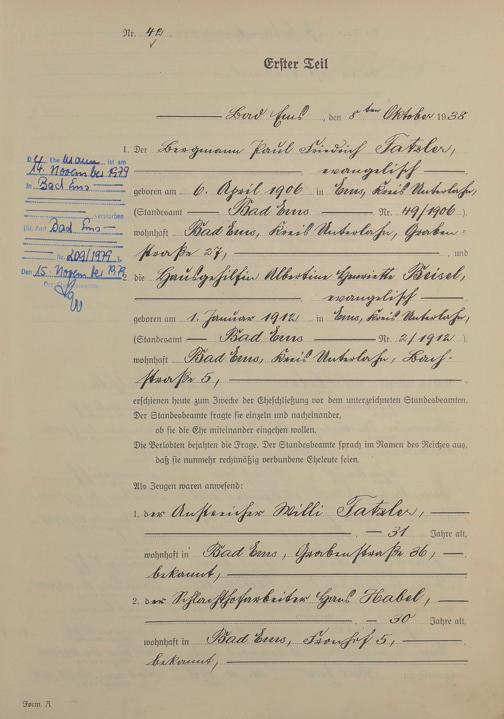 Nr. 42
Erster Teil
Bad Ems, den 8ten Oktober 1938
1. Der Bergmann Paul Friedrich Tatzler,
evangelisch
geboren am 6. April 1906 in Ems, Kreis Unterlahn,
(Standesamt Bad Ems Nr. 49/1906),
wohnhaft Bad Ems, Kreis Unterlahn, Graben-
straße 27, und
2. die Hausgehilfin Albertine Henriette Beisel,
evangelisch
geboren am 1. Januar 1912 in Ems, Kreis Unterlahn,
(Standesamt Bad Ems Nr. 2/1912),
wohnhaft Bad Ems, Kreis Unterlahn, Bach-
straße 5,
erschienen heute zum Zwecke der Eheschließung vor dem unterzeichneten Standesbeamten.
Der Standesbeamte fragte sie einzeln und nacheinander,
ob sie die Ehe miteinander eingehen wollen.
Die Verlobten bejahten die Frage. Der Standesbeamte sprach im Namen des Reiches aus,
daß sie nunmehr rechtmäßig verbundene Eheleute seien.
Als Zeugen waren anwesend:
1. der Anstreicher Willi Tatzler,
31 Jahre alt,
wohnhaft in Bad Ems, Grabenstraße 36,
bekannt,
2. der Schlachthofarbeiter Hans Habel,
30 Jahre alt,
wohnhaft in Bad Ems, Fronhof 5,
bekannt,
Form. A
Ehemann ist am
14. November 1979
in Bad Ems
verstorben
Bad Ems
Nr. 209/1979).
Den 15. November 1979